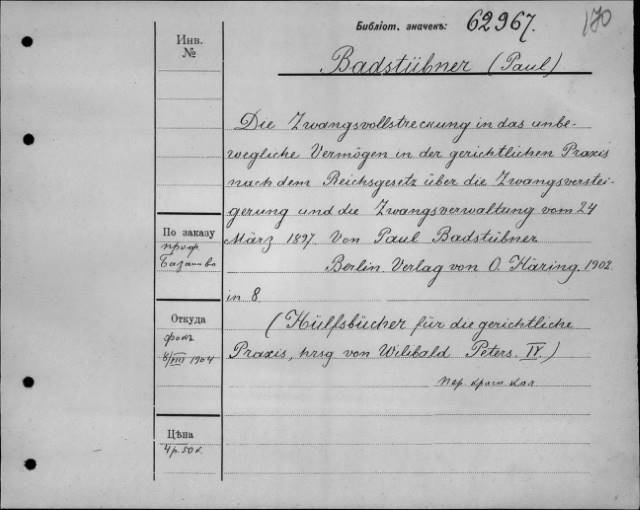 Библіот. значекъ: 62967. 170
Инв.
№
Badstübner (Paul)
Die Zwangsvollstreckung in das unbe-
wegliche Vermögen in der gerichtlichen Praxis
nach dem Reichsgesetz über die Zwangsverstei-
gerung und die Zwangsverwaltung vom 24
März 1897. Von Paul Badstübner
Berlin. Verlag von O. Häring. 1902.
in 8.
(Hülfsbücher für die gerichtliche
Praxis, hrsg von Wilibald Peters. IV.)
пер. крас. кол.
По заказу
проф
Базанова
Откуда
фокъ
6/VIII 1904
Цѣна
4 р. 50 к.